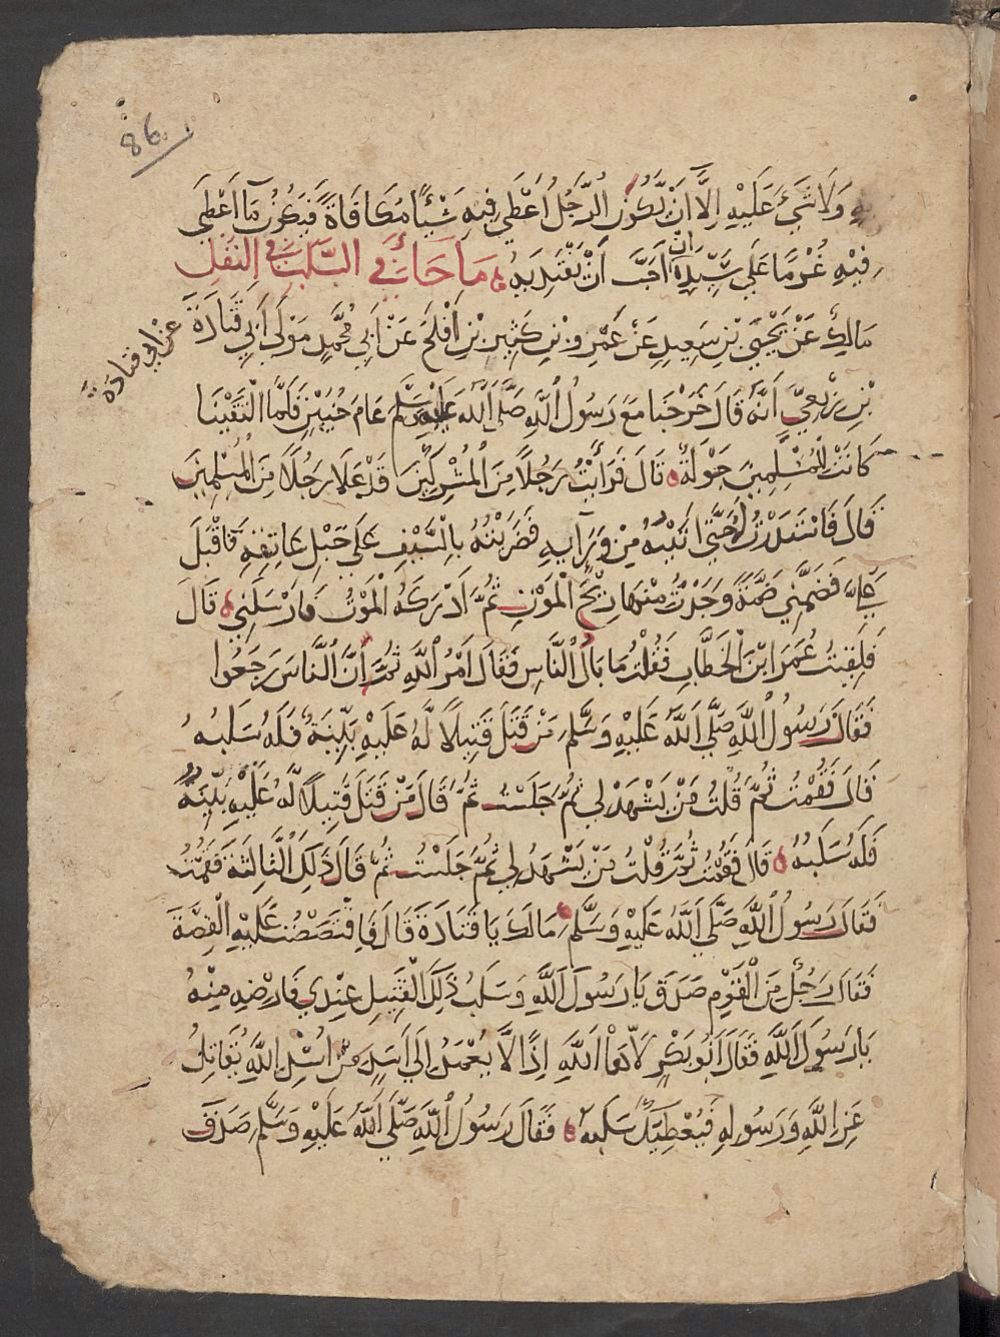 86
به وَلَا شَيْءَ عَلَيْهِ اِلَّا اَنْ يَّكُوْنَ الرَّجُلُ اُعْطِيَ فِيهِ شَيْئًا مُكَافَاةً فَيَكُوْنُ مَا اُعْطِيَ
فِيْهِ غُرْمًا عَلَى سَيِّدِهِ اِن اَحَبَّ اَنْ يَّفْتَدِيَهُ مَا جَاءَ فِي السَّلَبِ فِي النَفَلِ
مَالِكٌ عَنْ يَحْيَى بْنِ سَعِيدٍ عَنْ عَمْرِو بْنِ كَثِيرِ بْنِ اَفْلَحَ عَنْ اَبِي مُحَمَّدٍ مَوْلَى اَبِي قَتَادَةَ
عن ابي قتادة
بْنِ رِبْعِيٍّ اَنَّهُ قَالَ خَرَجْنَا مَعَ رَسُولِ اللَّهِ صَلَّى اللَّهُ عَلَيْهِ وَسَلَّمَ عَامَ حُنَيْنٍ فَلَمَّا الْتَقَيْنَا
كَانَتْ لِلْمُسْلِمِينَ جَوْلَةٌ قَالَ فَرَاَيْتُ رَجُلًا مِنَ الْمُشْرِكِيْنَ قَدْ عَلَا رَجُلًا مِنَ الْمُسْلِمِينَ
قَالَ فَاسْتَدَرْتُ لَهُ حَتَّى اَتَيْتُهُ مِنْ وَّرَآيِهِ فَضَرَبْتُهُ بِالسَّيْفِ عَلَى حَبْلِ عَاتِقِهِ فَاَقْبَلَ
عَلَيَّ فَضَمَّنِي ضَمَّةً وَجَدْتُ مِنْهَا رِيْحَ الْمَوْتِ ثُمَّ اَدْرَكَهُ الْمَوْتُ فَاَرْسَلَنِي قَالَ
فَلَقِيتُ عُمَرَ ابْنَ الْخَطَّابِ فَقُلْتُ مَا بَالُ النَّاسِ فَقَالَ اَمْرُ اللَّهِ ثُمَّ اِنَّ النَّاسَ رَجَعُوا
فَقَالَ رَسُولُ اللَّهِ صَلَّى اللَّهُ عَلَيْهِ وَسَلَّمَ مَنْ قَتَلَ قَتِيلًا لَّهُ عَلَيْهِ بَيِّنَةٌ فَلَهُ سَلَبُهُ
قَالَ فَقُمْتُ ثُمَّ قُلْتُ مَنْ يَشْهَدُ لِي ثُمَّ جَلَسْتُ ثُمَّ قَالَ مَنْ قَتَلَ قَتِيلًا لَّهُ عَلَيْهِ بَيِّنَةٌ
فَلَهُ سَلَبُهُ قَالَ فَقُمْتُ ثُمَّ قُلْتُ مَنْ يَشْهَدُ لِي ثُمَّ جَلَسْتُ ثُمَّ قَالَ ذَلِكَ الثَّالِثَةَ فَقُمْتُ
فَقَالَ رَسُولُ اللَّهِ صَلَّى اللَّهُ عَلَيْهِ وَسَلَّمَ مَالَكَ يَا قَتَادَةَ قَالَ فَاقْتَصَصْتُ عَلَيْهِ الْقِصَّةَ
فَقَالَ رَجُلٌ مِنَ الْقَوْمِ صَدَقَ يَا رَسُولَ اللَّهِ وَسَلَبُ ذَلِكَ الْقَتِيلِ عِنْدِي فَاَرْضِهِ مِنْهُ
يَا رَسُولَ اللَّهِ فَقَالَ اَبُو بَكْرٍ لَا هَا اللَّهِ اِذًا لَّا يَعْمِدُ اِلَى اَسَدٍ مِّنْ اُسْدِ اللَّهِ يُقَاتِلُ
عَنِ اللَّهِ وَرَسُولِهِ فَيُعْطِيَكَ سَلَبَهُ فَقَالَ رَسُولُ اللَّهِ صَلَّى اللَّهُ عَلَيْهِ وَسَلَّمَ صَدَقَ